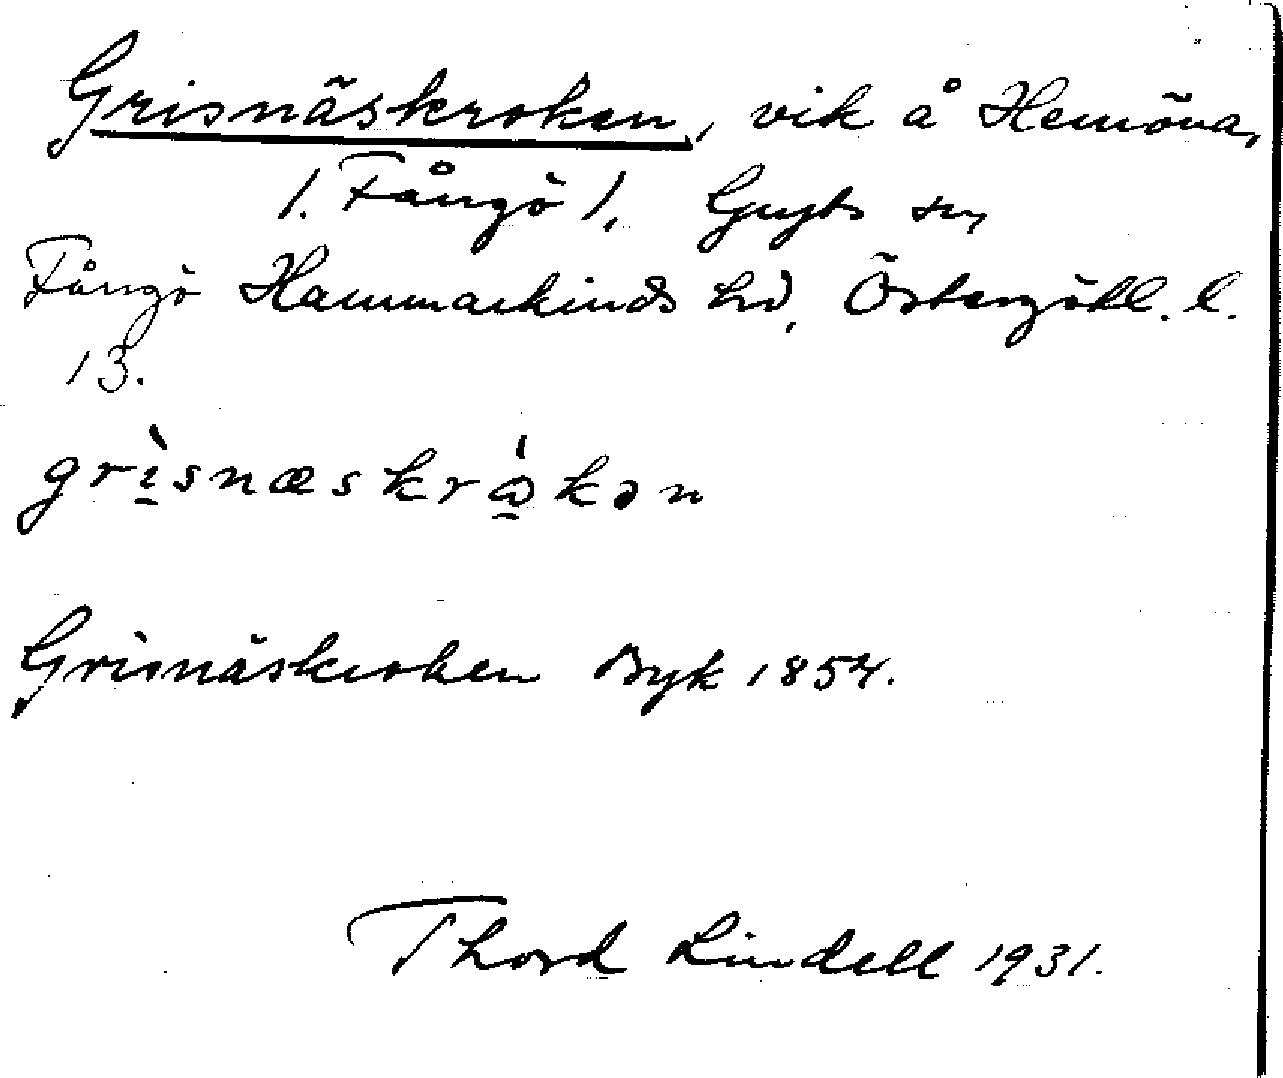 Grisnäskroken, vik å Hemöna,
1. Fångö 1, Gryts sn,
Fångö Hammarkinds hd, Östergötl. l.
13.
grìsnæskrὰkən
Grisnäskroken Byk 1854.
Thord Lindell 1931.